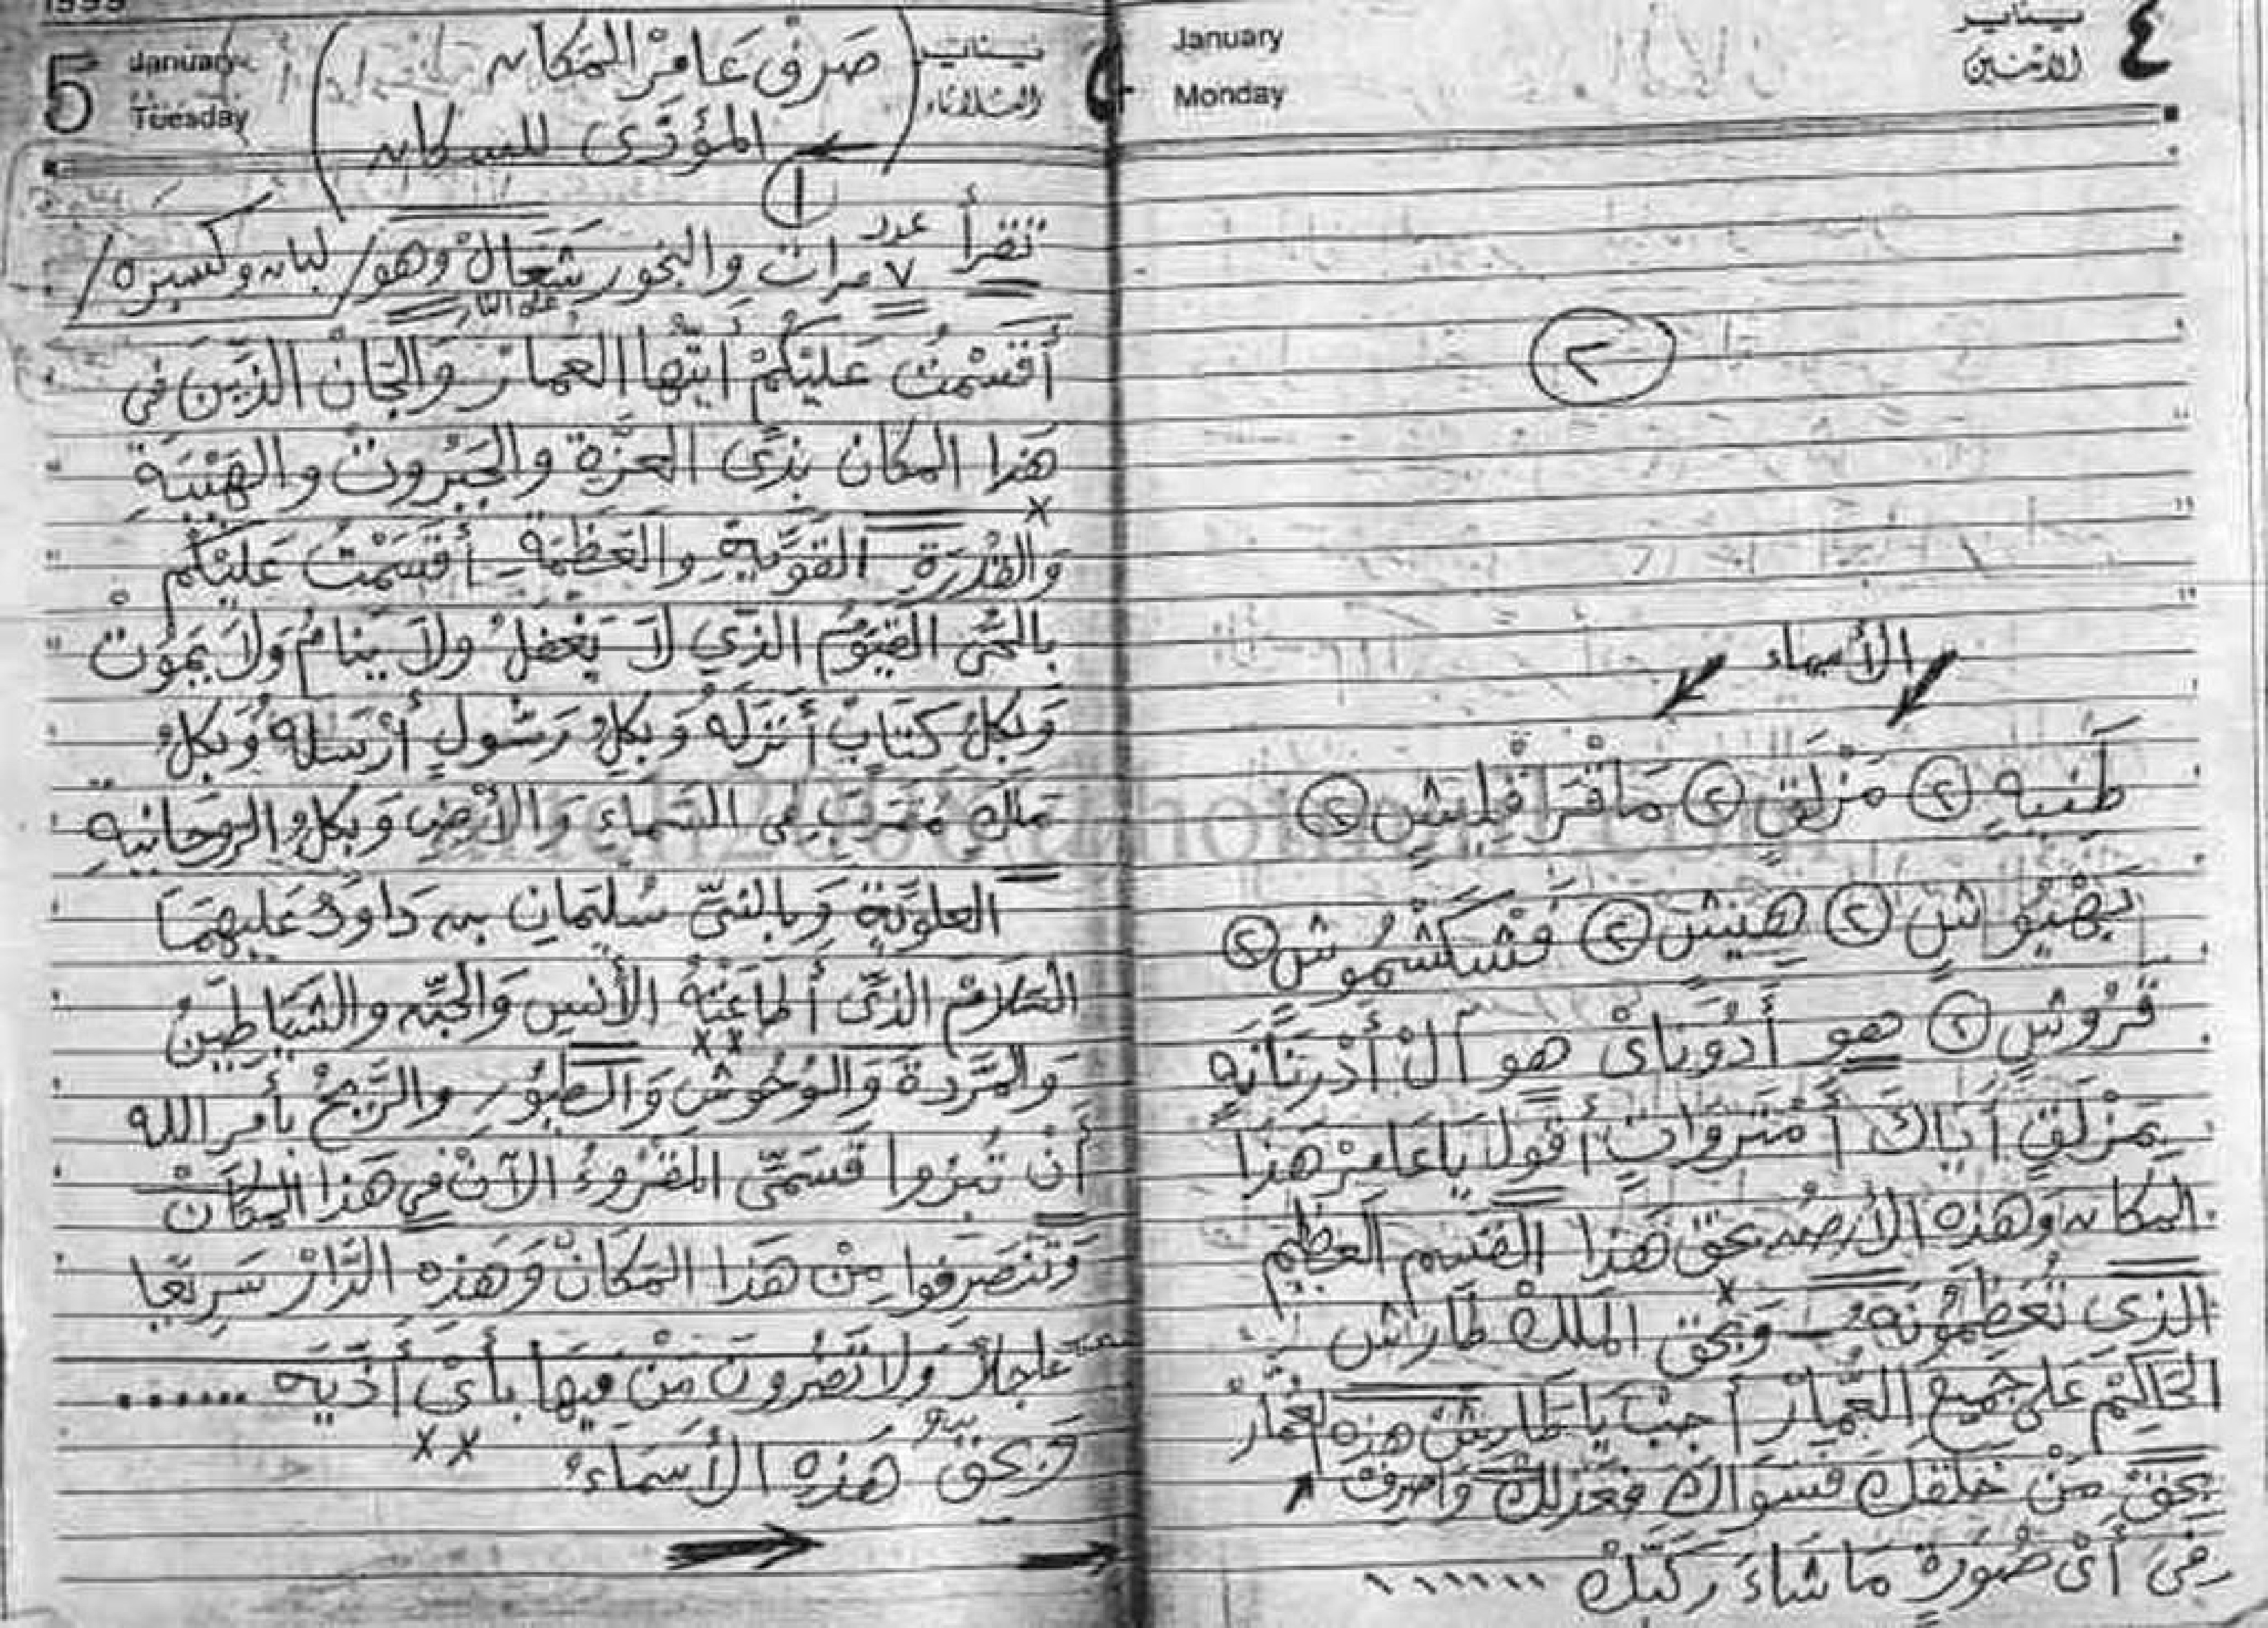 1999
5
January
Tuesday
يناير
الثلاثاء
صَرفْ عَامِرْ المَكان
المؤذى للسكان
١
تقرأ عدد ٧ مرات والبخور شَغَالْ وهو / لبان وكسبره /
على النار
أَقْسَمْتُ عَليْكُمْ أيَّتُها العُمارْ وَالجَانْ الذَينَ في
هَذا المكان بِذى العِزَّةِ والجَبَروت والهَيْبَةِ
وَالقُدْرَةِ القَوِيَّةِ والعَظَمَةِ أقسَمْتُ عَليْكُم
بالحَّى القَيَومُ الذَّي لاَ يَغْفلُ ولاَ يَنامُ وَلاَ يَمَوُتْ
وَبكلِ كتابٍ أنزلَهُ وَبكلِ رَسُولٍ أرْسَلهُ وَبكلِ
مَلكٍ مُقَرَبٍ فى السَماءِ وَالأرضِ وَبكلِ الروحانيهِ
العلويَّةِ وَبالنبىّ سُليَمانِ بن دَاوَدُ عَليهمَا
السَلامْ الذَّى أطاعَتْهُ الأنسِ وَالجِنِّ والشَيَاطِينُ
وَالمَرَدةَ وَالوُحُوشِ وَالطيُورِ والرَيحْ بأمر الله
أنْ تَبَروا قَسَمَىّ المقْروءُ الآنْ في هَذا المكَانْ
وَتَنْصَرِفوا مِنْ هَذا المَكَانْ وَهَذِهِ الدَّارْ سَرِيَعًا
عَاجِلاً وَلا تَضُرونَ مَنْ فيَها بأىْ أذَيَه ......
وَبحَقِّ هَذِهِ الأسَمَاءُ
January
Monday
يناير
الاثنين
٤
٢
الأسماء
طَنيهِ ٢ مَزْلَقٍ ٢ مَاقْرَاقْلِيشٍ ٢
يَهْيُواشٍ ٢ هَيَيشٍ ٢ قَشكَشْمُوشٍ ٢
قَرُوشٍ ٢ هو أَدُونَاىْ هو آلْ
بمَزْلَقٍ أقول يَا عَامِرْ هَذا
المكان وَهذه الأرض بحق هَذا القَسِم العَظِيم
الذي تُعَظِمُونَهُ وَبحَق الملكْ طَارش
الحَاكِمْ عَلى جَميعِ العُمارْ أجبْ يا طَارشْ هذه العُمارْ
بحَقْ مَنْ خَلقكَ فسَواكَ فعَدلكْ وَاصرف
فىَ أىْ صُورةٍ مَا شاءَ رَكَبَكْ